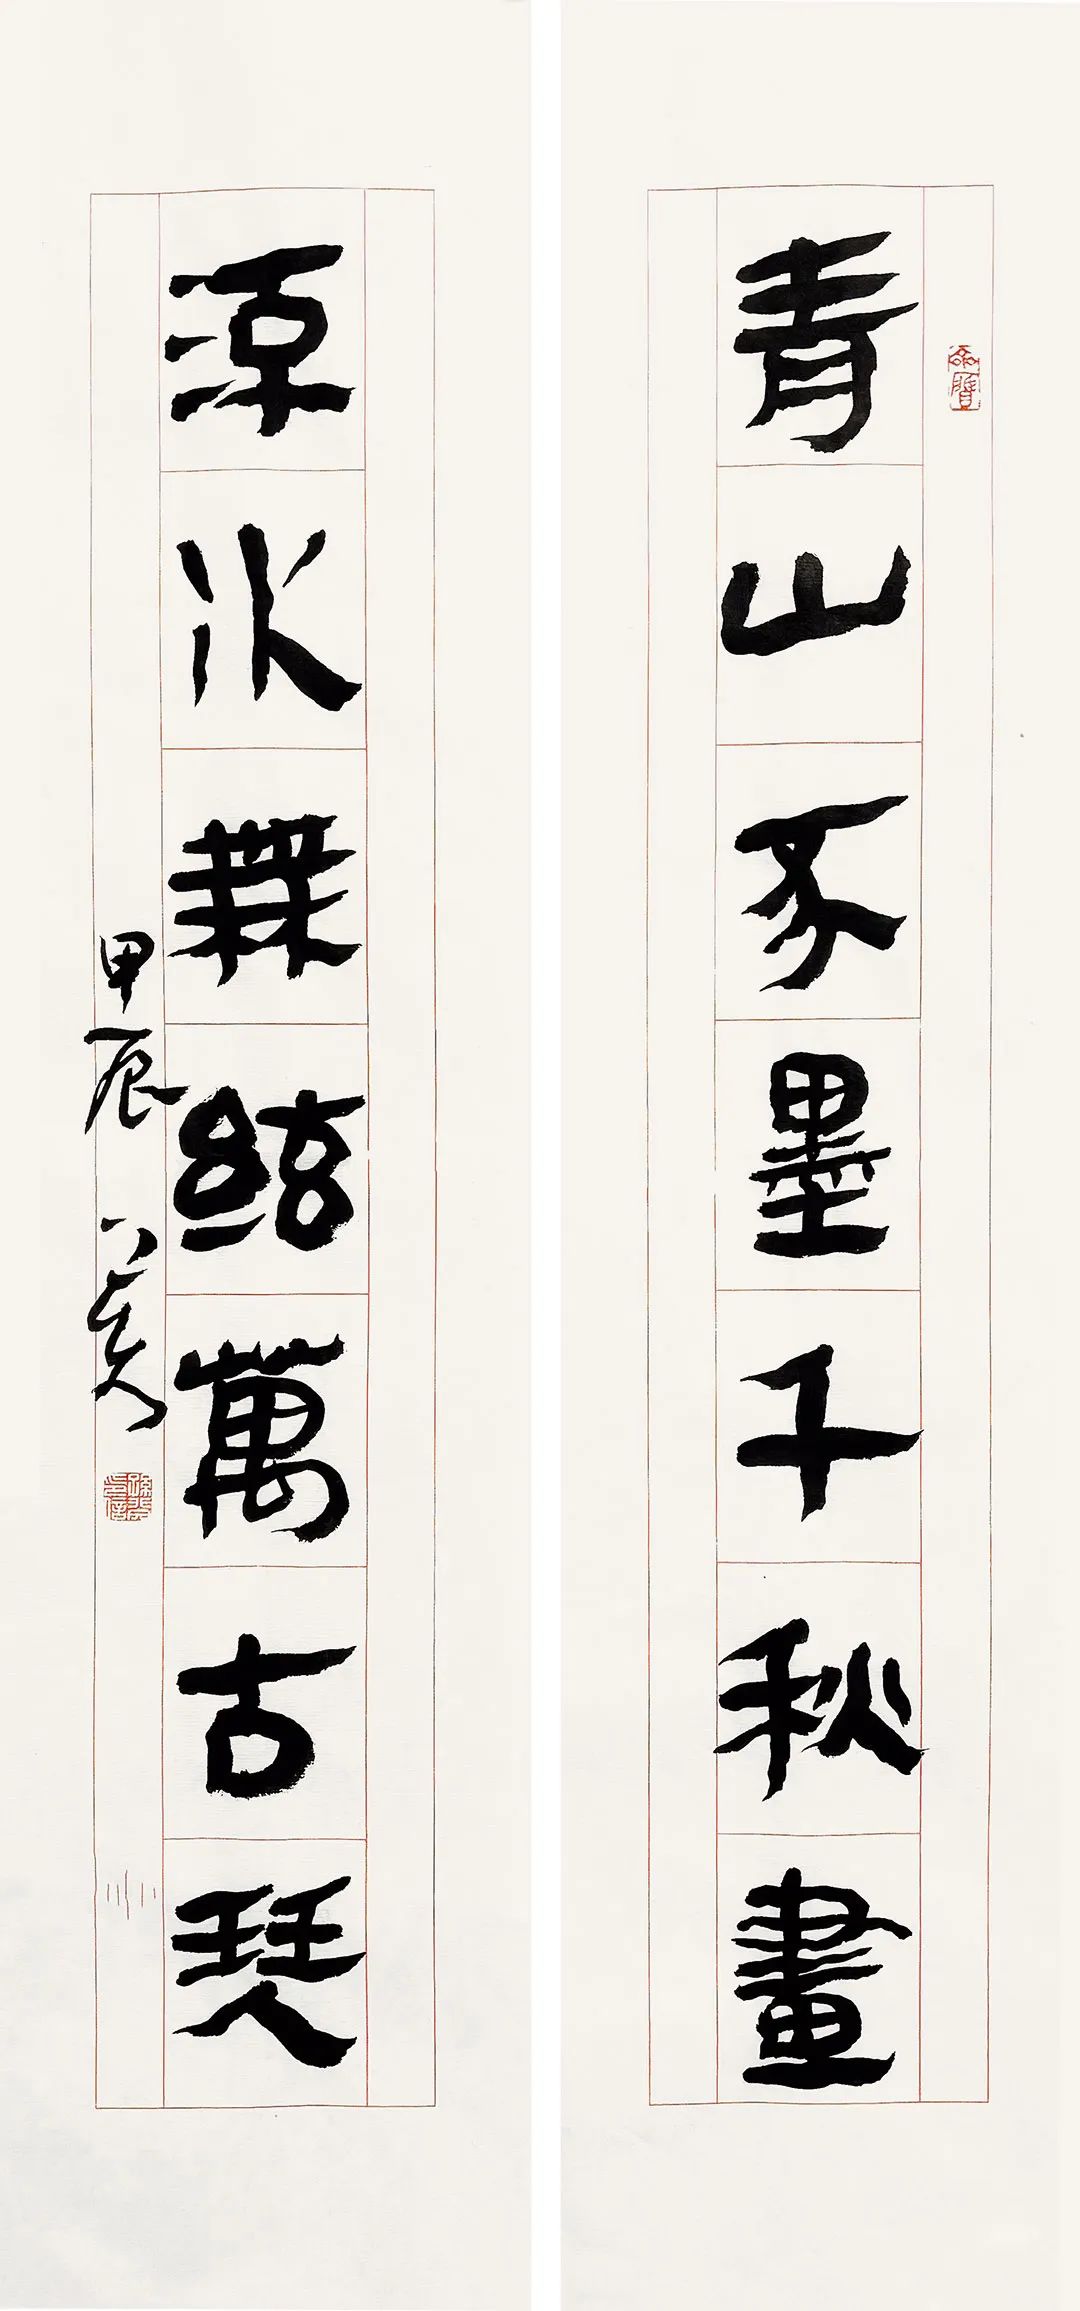 青山不墨千秋畫
流水無絃萬古琴
甲辰